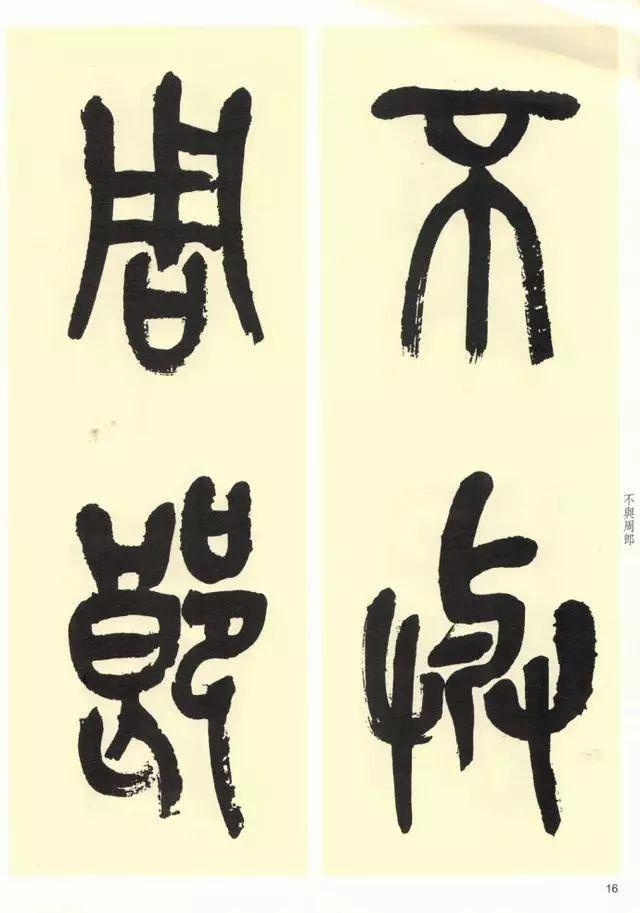 不與
周郎
不與周郎
16